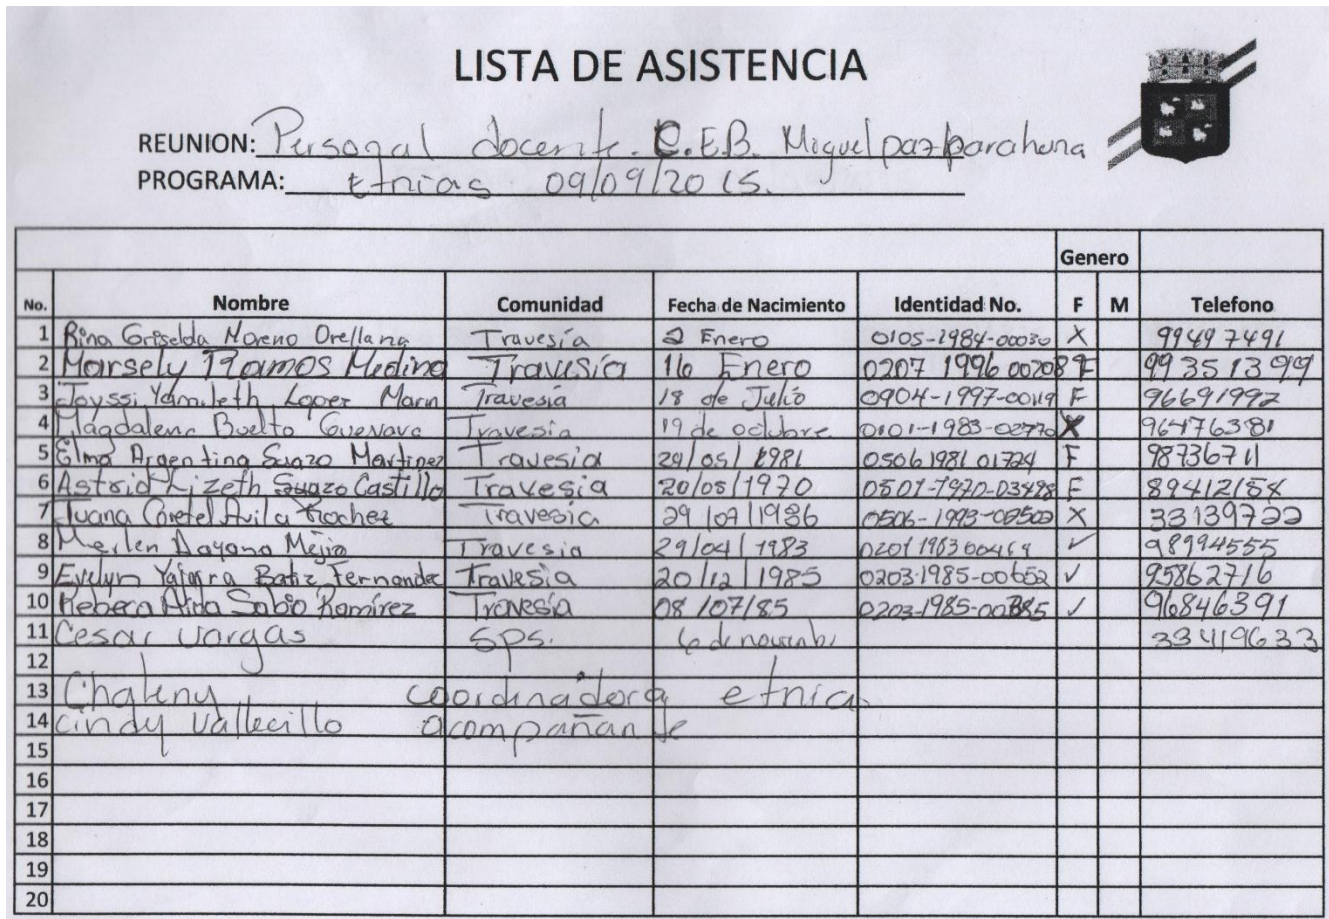 LISTA DE ASISTENCIA
REUNION: Personal docente. C.E.B. Miguel paz barahona
PROGRAMA: Etnias 09/09/2015.
Genero
No. Nombre Comunidad Fecha de Nacimiento Identidad No. F M Telefono
1 Rina Griselda Moreno Orellana Travesía 2 Enero 0105-1984-00030 X 99497491
2 Marsely Ramos Medina Travesía 16 Enero 0207 1996 00208 F 99351399
3 Joyssi Yamileth Lopez Marin Travesía 18 de Julio 0904-1997-00119 F 96691992
4 Magdalena Buelto Guevara Travesía 19 de octubre 0101-1983-02770 X 96476381
5 Elma Argentina Suazo Martinez Travesia 24/05/1981 0506 1981 01724 F 98736711
6 Astrid Lizeth Suazo Castillo Travesia 20/05/1970 0501-1970-03498 F 89412154
7 Juana Avila Trochez Travesia 29/07/1986 X 33139722
8 Merlen Dayana Mejia Travesia 29/04/1983 ✓ 98994555
9 Evelyn Yajayra Batiz Fernandez Travesia 20/12/1985 0203-1985-00652 ✓ 95862716
10 Rebeca Nina Sabio Ramírez Travesía 08/07/85 ✓ 96846391
11 Cesar Vargas SPS. 6 de 33419633
12
13 Chaleny coordinadora etnica
14 Cindy Vallecillo acompañante
15
16
17
18
19
20